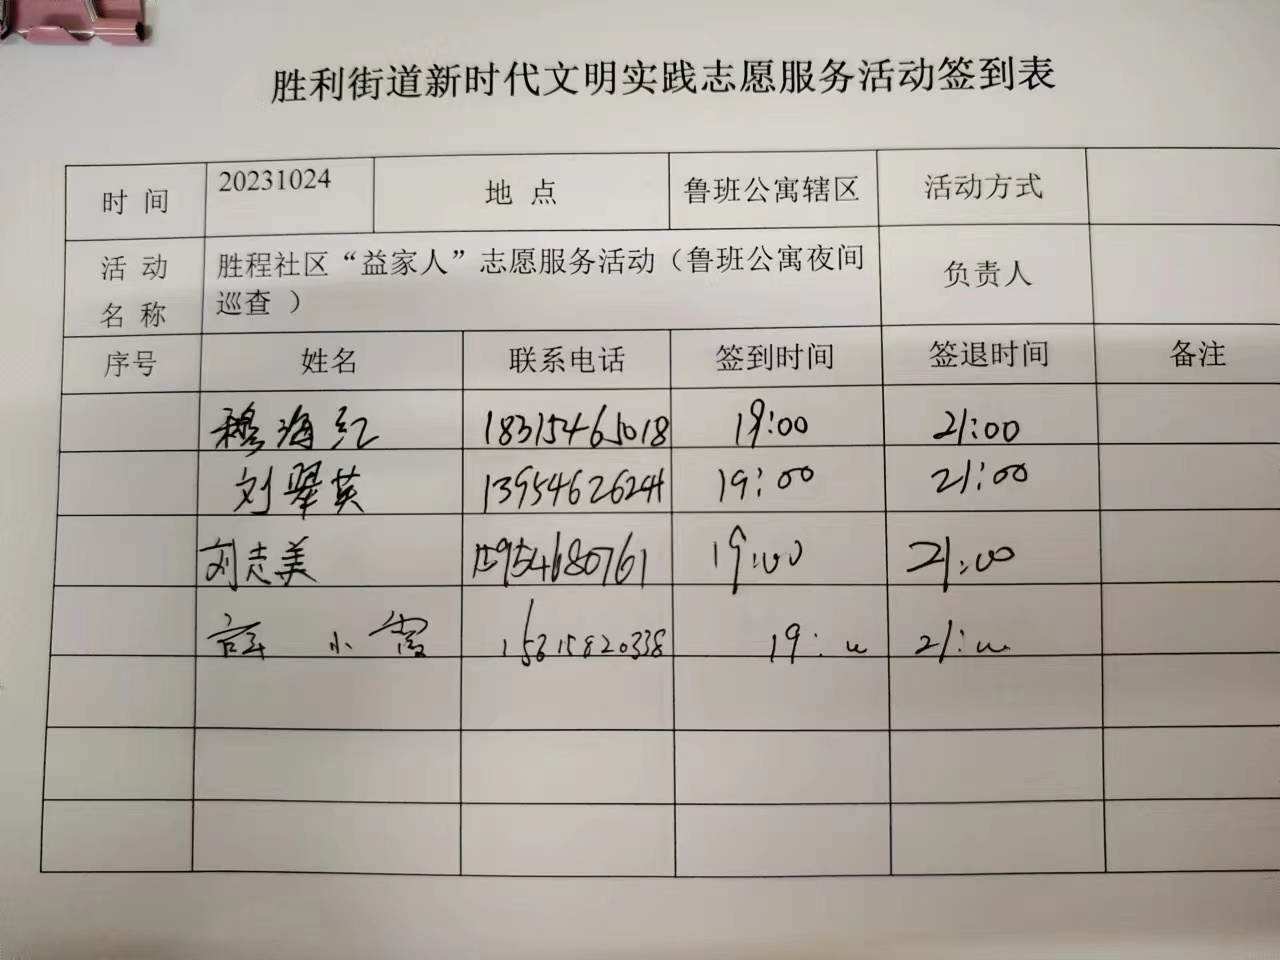 胜利街道新时代文明实践志愿服务活动签到表
时 间 20231024 地 点 鲁班公寓辖区 活动方式
活 动 名 称 胜程社区“益家人”志愿服务活动（鲁班公寓夜间
巡查 ） 负责人
序号 姓名 联系电话 签到时间 签退时间 备注
穆海红 18315465018 19:00 21:00
刘翠英 13954626244 19:00 21:00
刘志美 15954680761 19:00 21:00
小霞 15315820338 19:00 21:00